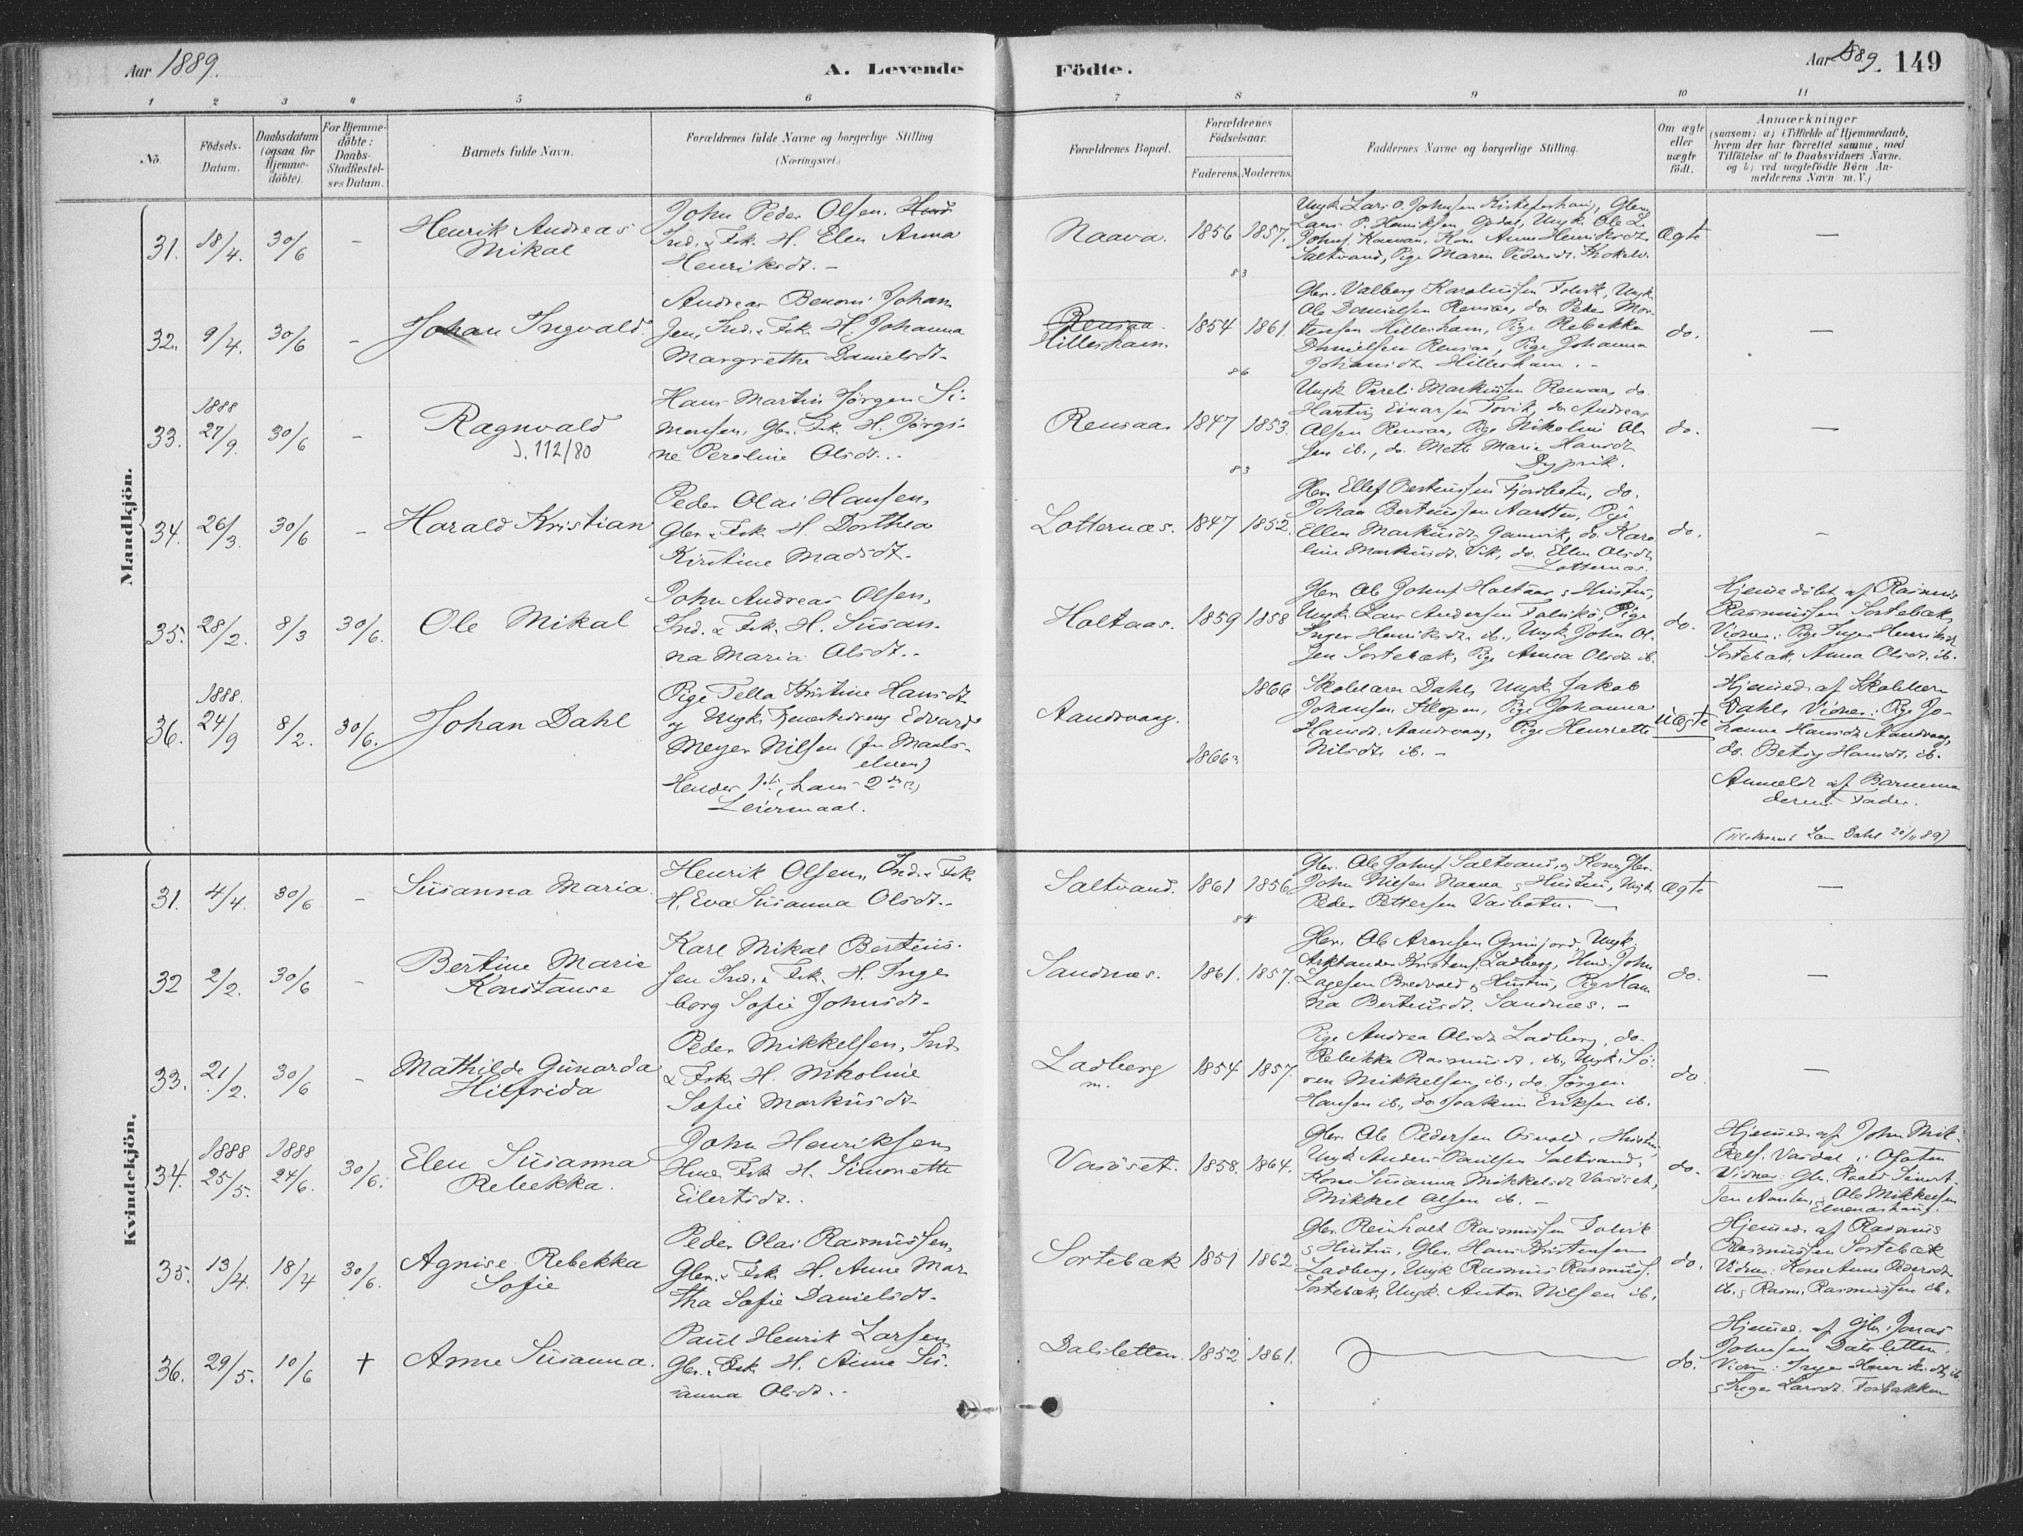 Aar 1889. A. Levende Födte. Aar 1889. 149
1 2 3 4 5 6 7 8 9 10 11
No. Födsels-Datum. Daabsdatum (ogsaa for Hjemme-döbte). For Hjemme-döbte: Daabs-Stadfæstel-ses Datum. Barnets fulde Navn. Forældrenes fulde Navne og borgerlige Stilling (Næringsvei.) Forældrenes Bopæl. Forældrenes Födselsaar. Faderens. Moderens. Faddernes Navne og borgerlige Stilling. Om ægte eller uægte födt. Anmærkninger (saasom: a) i Tilfælde af Hjemmedaab, hvem der har forrettet samme, med Tilföielse af to Daabsvidners Navne, og b) ved uægtefödte Börn An-melderens Navn m. V.)
Mandkjön.
31. 18/4. 30/6 - Henrik Andreas Mikal
John Peder Olsen,
Ind. & Fsk. H. Elen Anna
Henriksdt. -
Naava. 1856 1857. 83
Ungk. Lars O. Johnsen
Lars P. Henriksen
Saltvand, Pige Maren Pedersdt.
Ægte -
32. 9/4. 30/6 - Johan Ingvald
Andreas Benoni Johan
sen, Ind. & Fsk. H. Johanna
Margrethe Danielsdt.
Rensaa. Hilleshavn. 1854 1861. 86
Gbr. Valberg Karolinssen Tovik, Ungk.
Ole Danielsen Rensaa, do Peder Mor
tensen Hilleshavn, Pige Rebekka
Danielsen Rensaa, Pige Johanna
Johansdt. Hilleshavn. -
do. -
33. 1888 27/9 30/6 - Ragnvald
J. 112/80
Hans Martin Jørgen Si-
monsen, Gbr. Fsk. H. Jørgi-
ne Peroline Olsdt..
Rensaa. 1847 1853. 83
Ungk. Pareli Markussen Rensaa, do.
Hartvig Einarsen Tovik, do Andreas
Olsen Rensaa, Pige Nikoline Ol
sen ib., do. Mette Maria Hansdt.
Dypvik.
do. -
34. 26/3. 30/6 - Harald Kristian
Peder Olai Hansen,
Gbr. & Fsk. H. Dorthea
Kirstine Madsdt.
Lotternæs. 1847 1852.
Gbr. Ellef Berteussen Fjordbotn, do.
Johan Berteussen Aarsten, Pige
Ellen Markusdt. Gamvik, do. Karo
line Markusdt. Vik, do. Ellen Olsdt.
Lotternæs.
do. -
35. 28/2. 8/3 30/6. Ole Mikal
John Andreas Olsen,
Ind. & Fsk. H. Susan-
na Maria Olsdt..
Holtaas. 1859 1858
Gbr. Ole Johns. Holtaas & Hustru,
Ungk. Lars Andersen Pige
Inger Henriksdt. ib., Ungk. John Ol-
sen Sortebæk, Pige Anna Olsdt. ib.
do.
Hjemmedöbt af Rasmus
Rasmussen Sortebæk,
Vidner: Pige Inger Henriksdt.
Sortebæk, Anna Olsdt. ib.
36. 1888. 24/9 8/2. 30/6. Johan Dahl
Pige Tella Kristine Hansdt.
og Ungk. Edvard
Meyer Nilsen (fra Maals-
elven)
Hendes 1ste, hans 2det (?)
Leiermaal.
Aandvaag. 1866? 1866
Skolelærer Dahl, Ungk. Jakob
Johansen Klopen, Pige Johanna
Hansdt. Aandvaag, Pige Henriette
Nilsdt. ib. -
uægte
Hjemmed. af Skolelærer
Dahl. Vidner: Pige Jo-
hanna Hansdt. Aandvaag,
do. Betzy Hansdt. ib.
Anmeldt af Barnemo
derens Fader.
Dahl 20/11 89)
Kvindekjön.
31. 4/4. 30/6 - Susanna Maria.
Henrik Olsen, Ind. & Fsk.
H. Eva Susanna Olsdt..
Saltvand. 1861 1856. 84
Gbr. Ole Johns. Saltvand & Kone, Gbr.
John Nilsen Naava & Hustru, Ungk.
Peder Pettersen Vasbotn. -
Ægte -
32 2/2. 30/6 - Bertine Marie Konstanse
Karl Mikal Berteus-
sen Ind. & Fsk. H. Inge
borg Sofie Johnsdt.
Sandnæs. 1861. 1857.
Gbr. Ole Arensen Grunjord, Ungk.
Arktander Kristens. Ladberg, Hmd. John
Lagesen Bredvold & Hustru, Pige Han
na Berteusdt. Sandnæs. -
do. -
33. 21/2. 30/6 - Mathilde Gunarda Hilfrida
Peder Mikkelsen, Ind.
& Fsk. H. Nikoline
Sofie Markusdt.
Ladberg m. 1854 1857.
Pige Andrea Olsdt. Ladberg, do.
Rebekka Rasmusdt. ib., Ungk. Sö-
ren Mikkelsen ib., do. Jörgen
Hansen ib., do Joakim Eriksen ib.
do -
34. 1888 25/5. 1888 24/6. 30/6. Elen Susanna Rebekka.
John Henriksen,
Hmd. Fsk. H. Simonette
Eilertsdt..
Vasöset. 1858. 1864.
Gbr. Ole Pedersen Osvold & Hustru,
Ungk. Anders Paulsen Saltvand,
Kone Susanna Mikkelsdt. Vasöset,
Mikkel Olsen ib. -
do.
Hjemmed. af John Mik-
kels. Vasdal i Ofoten
Vidner: Gbr. Roald Sivert-
sen & Ole Mikkelsen
Elvenæshaug.
35. 13/4. 18/4 30/6. Agnise Rebekka Sofie
Peder Olai Rasmussen,
Gbr. & Fsk. H. Anne Mar
tha Sofie Danielsdt.
Sortebæk 1851 1862
Gbr. Reinholt Rasmussen Tolvik
& Hustru, Gbr. Hans Kristensen
Ladberg, Ungk. Rasmus Rasmuss.
Sortebæk, Ungk. Anton Nilsen ib.
do.
Hjemmed. af Rasmus
Rasmussen Sortebæk
Vidner: Kone Anne Pedersdt.
ib. & Rasm. Rasmussen ib.
36. 29/5. 10/6 † Anne Susanna.
Paul Henrik Larsen
Gbr. Fsk. H. Anne Su-
sanna Olsdt..
Dalsletten. 1852 1861.
do.
Hjemmed. af Gbr. Jonas
Johnsen Dalsletten.
Vidn: Inger Henriksdt. ib
& Inger Larsdt. Forbakken